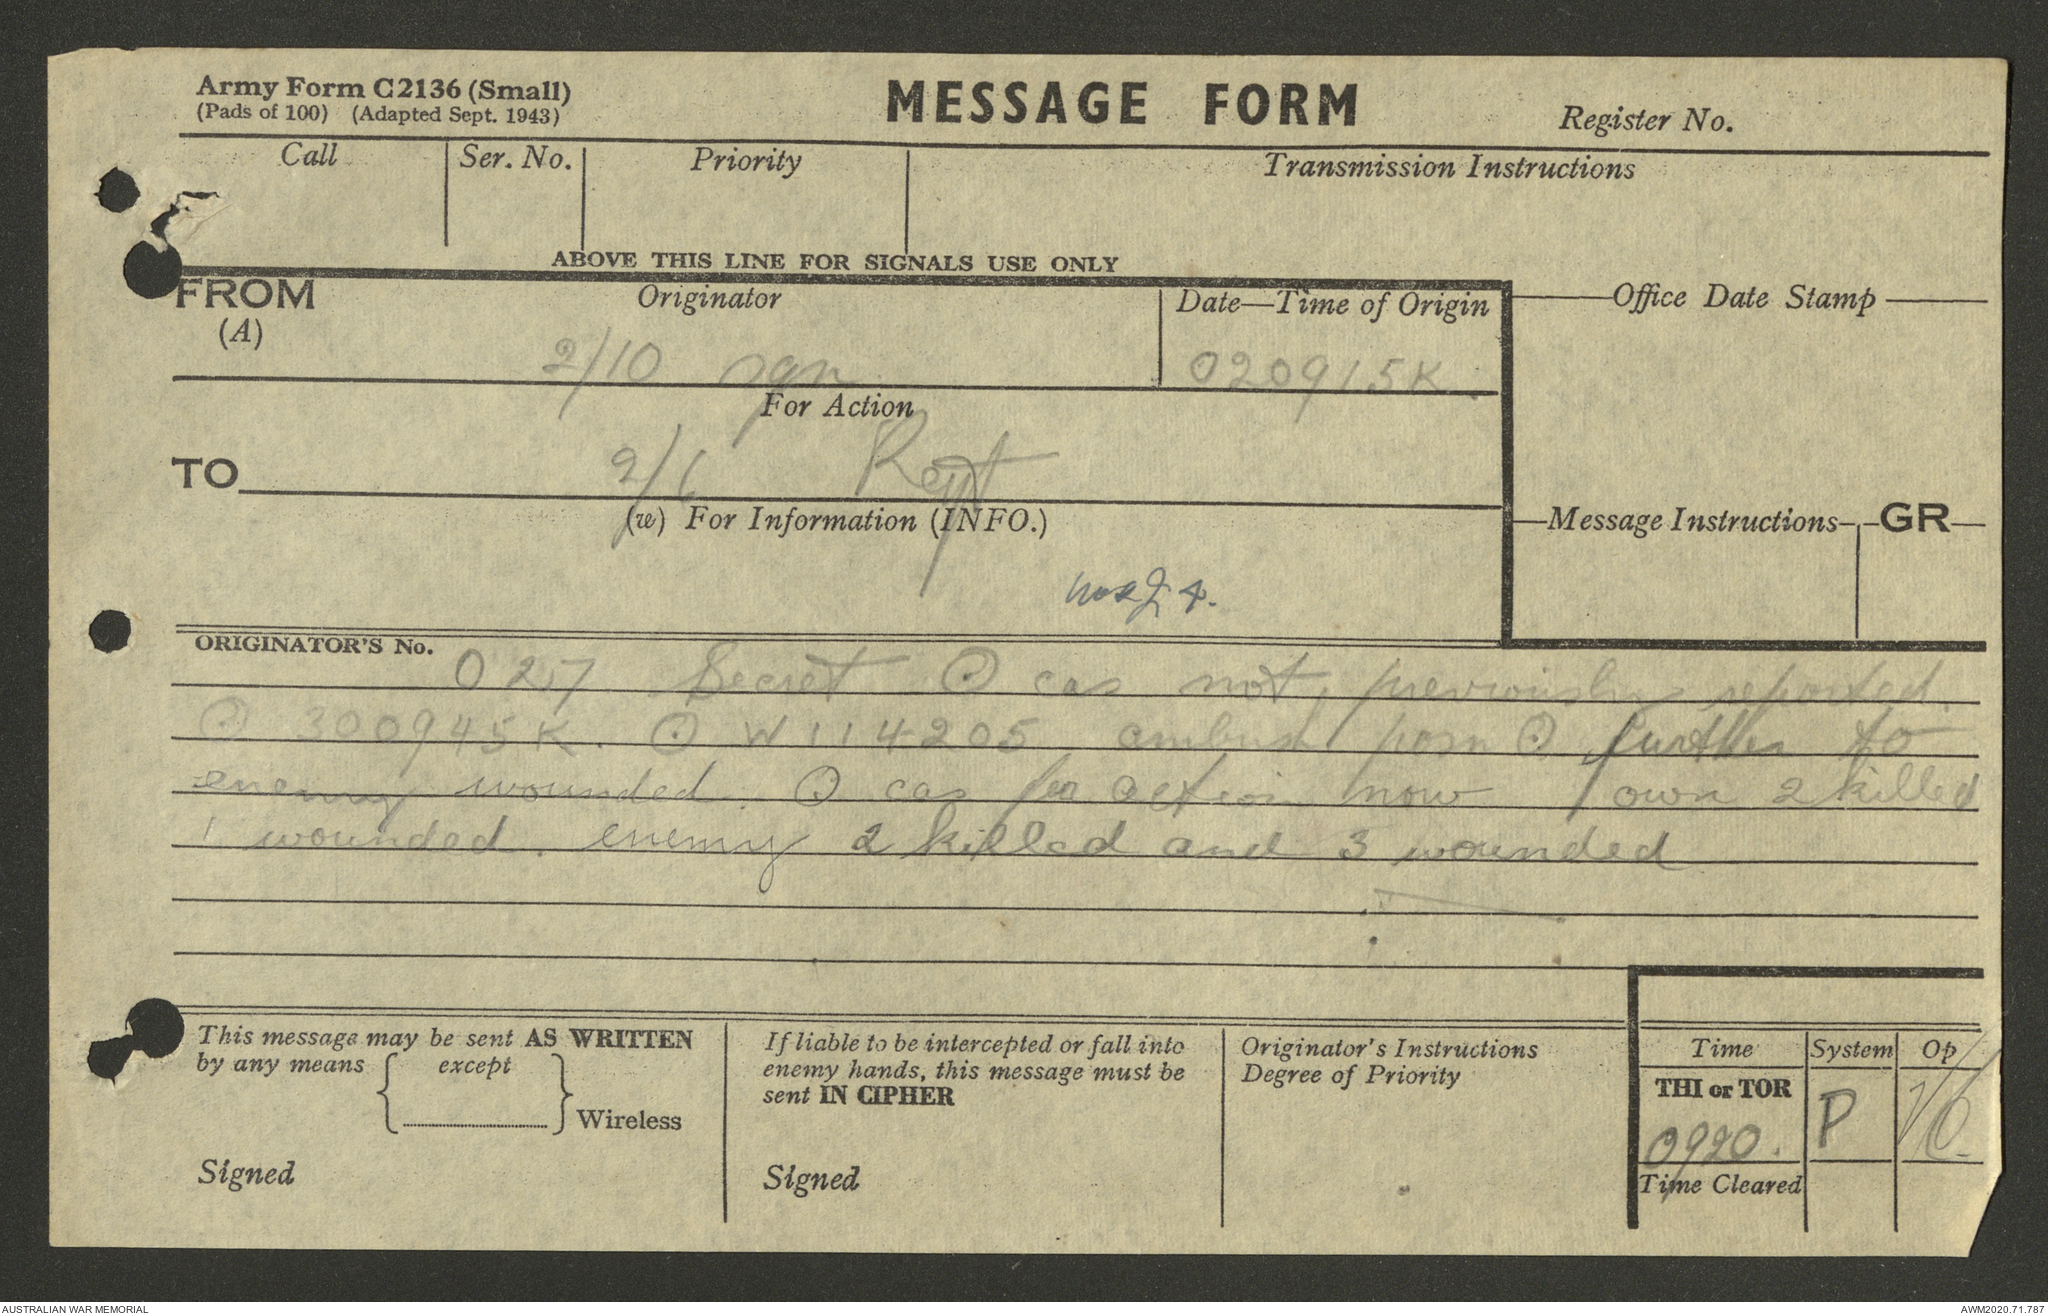 Army Form C2136 (Small)
(Pads of 100) (Adapted Sept. 1943)
MESSAGE FORM
Register No.
Call
Ser. No.
Priority
Transmission Instructions
ABOVE THIS LINE FOR SIGNALS USE ONLY
FROM
(A)
Originator
2/10 sqn
Date—Time of Origin
020915K
Office Date Stamp
For Action
TO
2/6 Regt
(w) For Information (INFO.)
Message Instructions
GR
ORIGINATOR'S No.
027 Secret O cas not previously reported.
O 300945K. O W114205 ambush posn O further to
enemy wounded. O cas for action now own 2 killed
1 wounded. enemy 2 killed and 3 wounded
This message may be sent AS WRITTEN
by any means { except
} Wireless
Signed
If liable to be intercepted or fall into
enemy hands, this message must be
sent IN CIPHER
Signed
Originator's Instructions
Degree of Priority
Time
System
Op
THI or TOR
0920.
P
Time Cleared
AUSTRALIAN WAR MEMORIAL
AWM2020.71.787